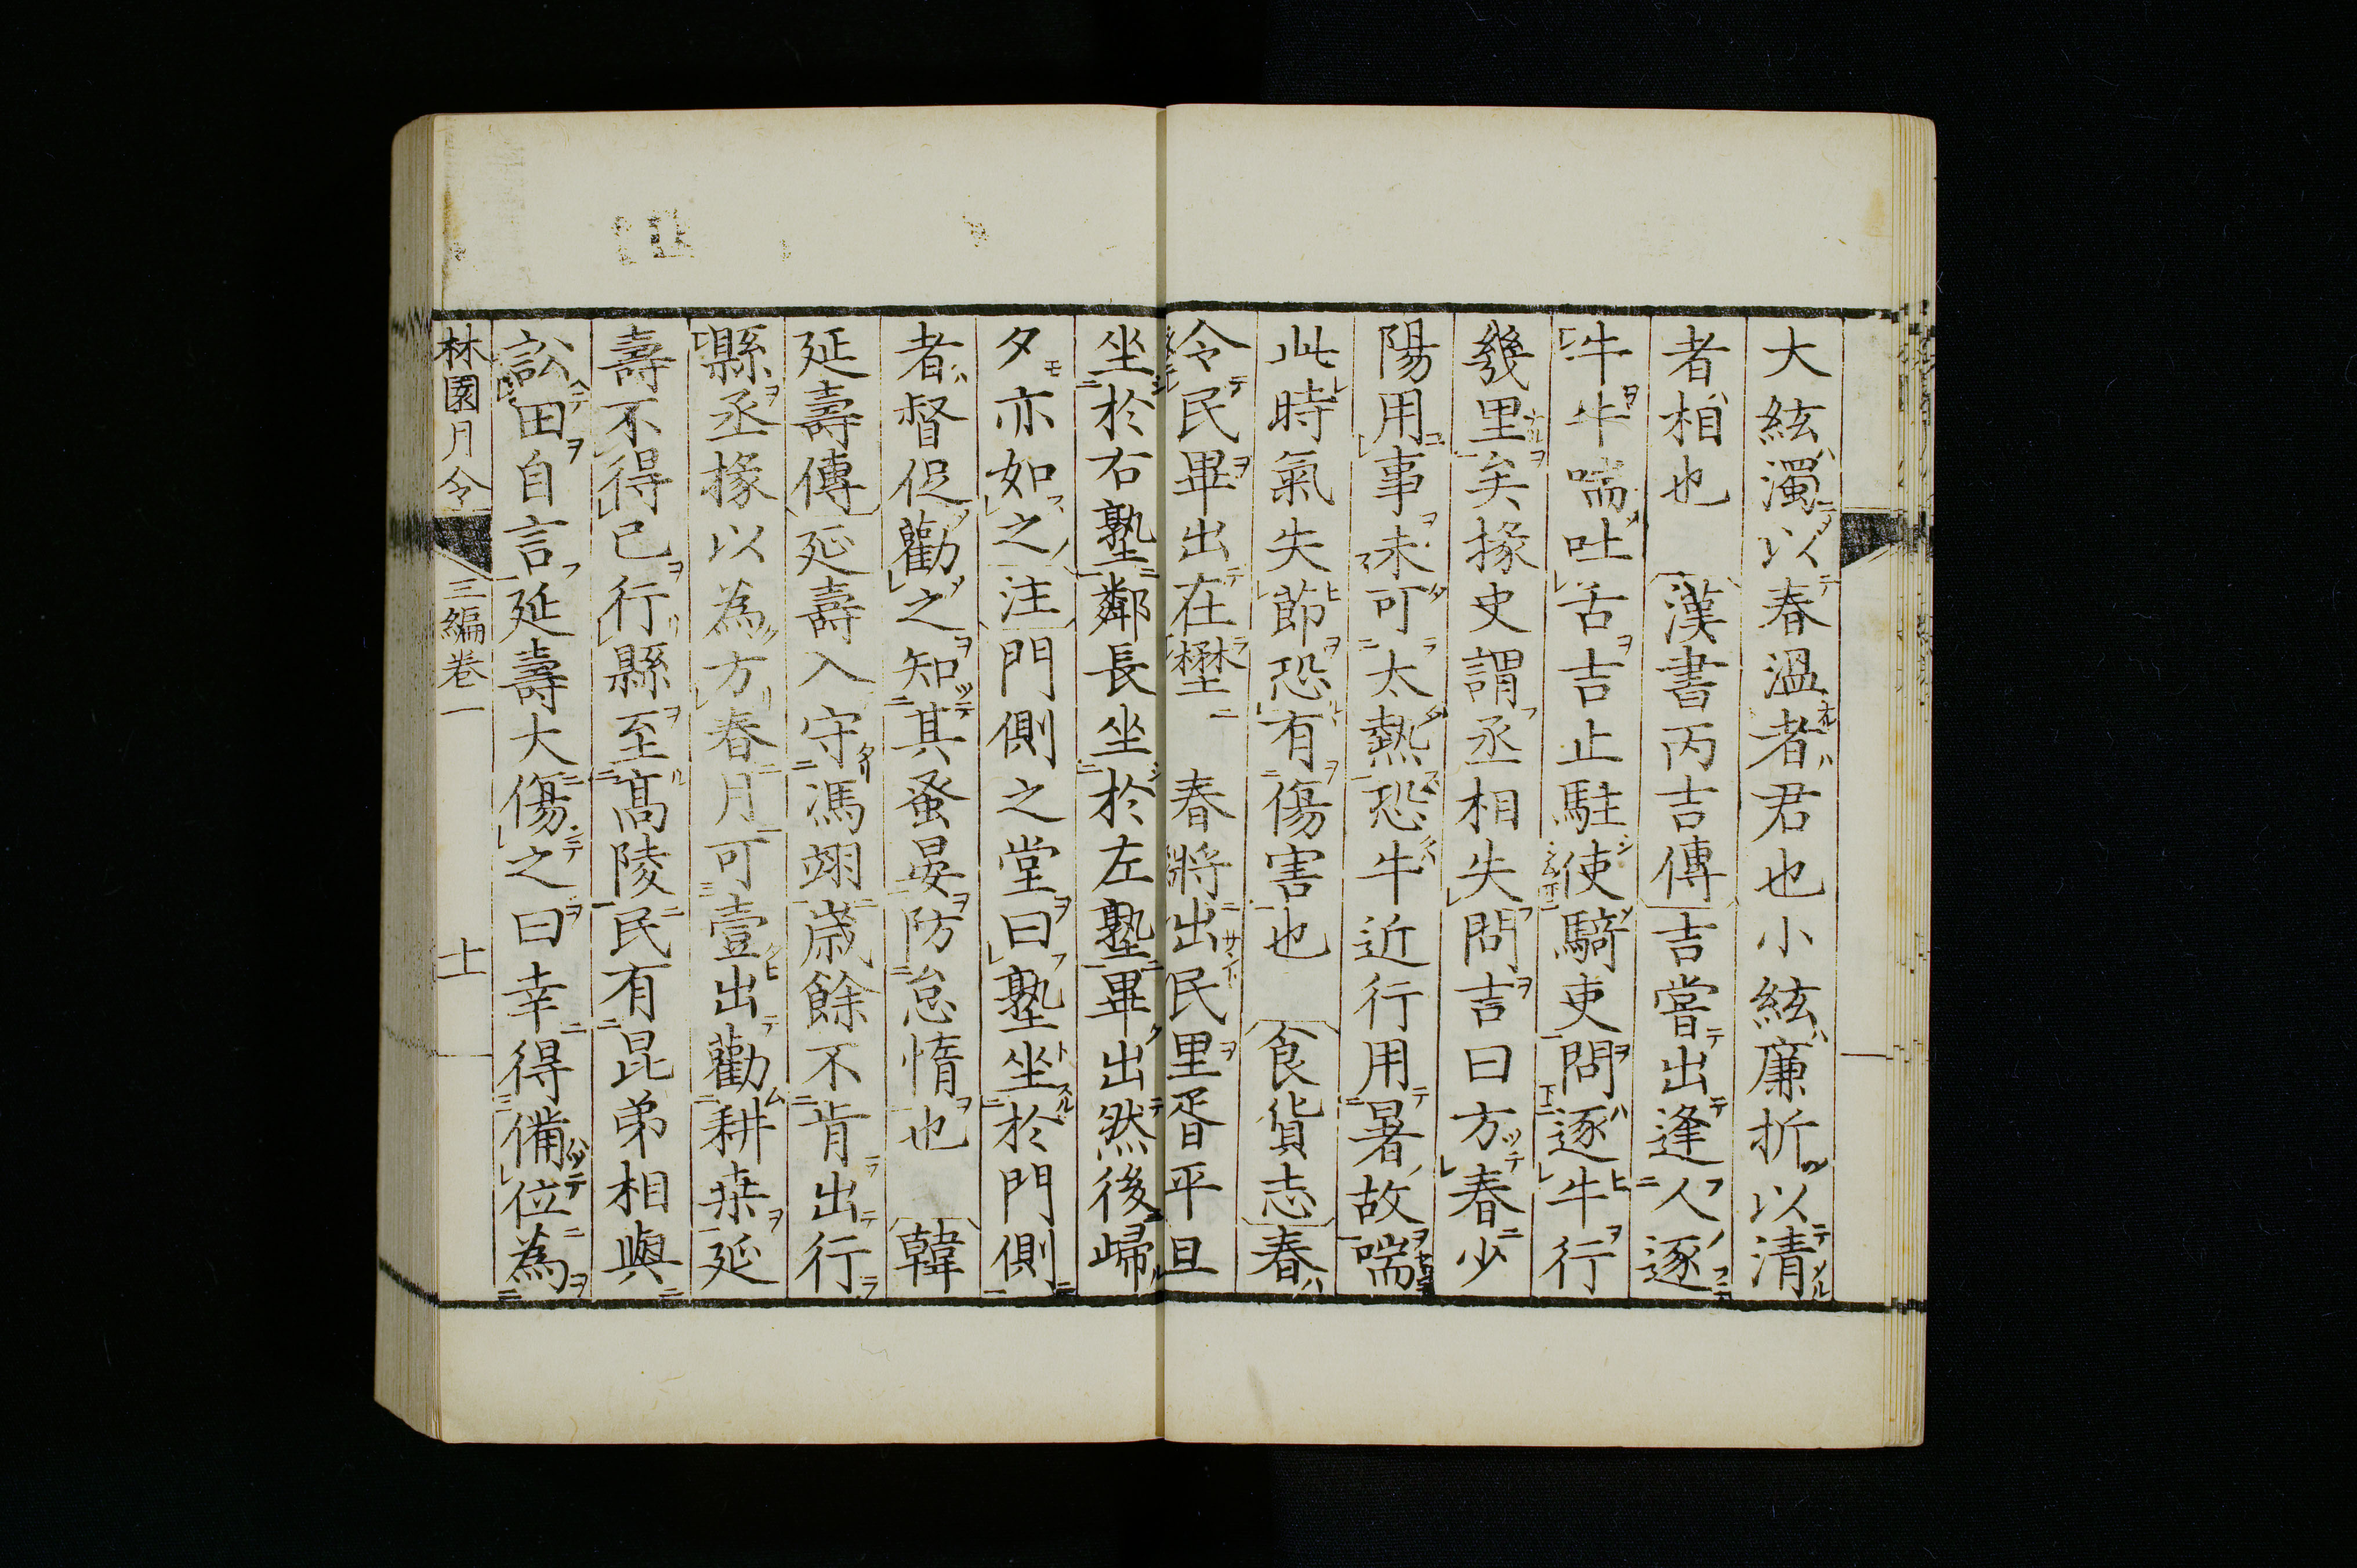 大絃濁以春溫者君也小絃廉折以清
者相也　漢書丙吉傳吉嘗出逢人逐
牛牛喘吐舌吉止駐使騎吏問逐牛行
幾里矣掾史謂丞相失問吉曰方春少
陽用事未可太熱恐牛近行用暑故喘
此時氣失節恐有傷害也　食貨志春
令民畢出在壄　春將出民里胥平旦
坐於右塾鄰長坐於左塾畢出然後歸
夕亦如之注門側之堂曰塾坐於門側
者督促勸之知其蚤晏防怠惰也　韓
延壽傳延壽入守馮翊歲餘不肯出行
縣丞掾以為方春月可壹出勸耕桒延
壽不得已行縣至髙陵民有昆弟相與
訟田自言延壽大傷之曰幸得備位為
林園月令　三編卷一　十一